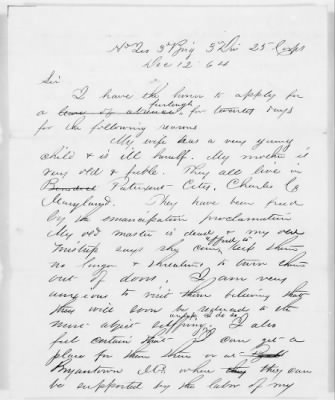 Hd Qrs 3d Brig 3d Div 25 Corps
Dec 12. 64
Sir
I have the honor to apply for
a leave of absence furlough for twenty days
for the following reasons
My wife has a very young
child & is ill herself. My mother is
very old & feeble. They all live in
Patuxent City, Charles Co
Maryland. They have been freed
by the emancipation proclamation
My old master is dead & my old
mistress says she cannot afford to keep them
no longer & threatens to turn them
out of doors. I am very
anxious to visit them believing that
they will soon be reduced to the
most abject suffering. I also
feel certain that I can get a
place for them there or at
Bryantown Md. where they can
be supported by the labor of my